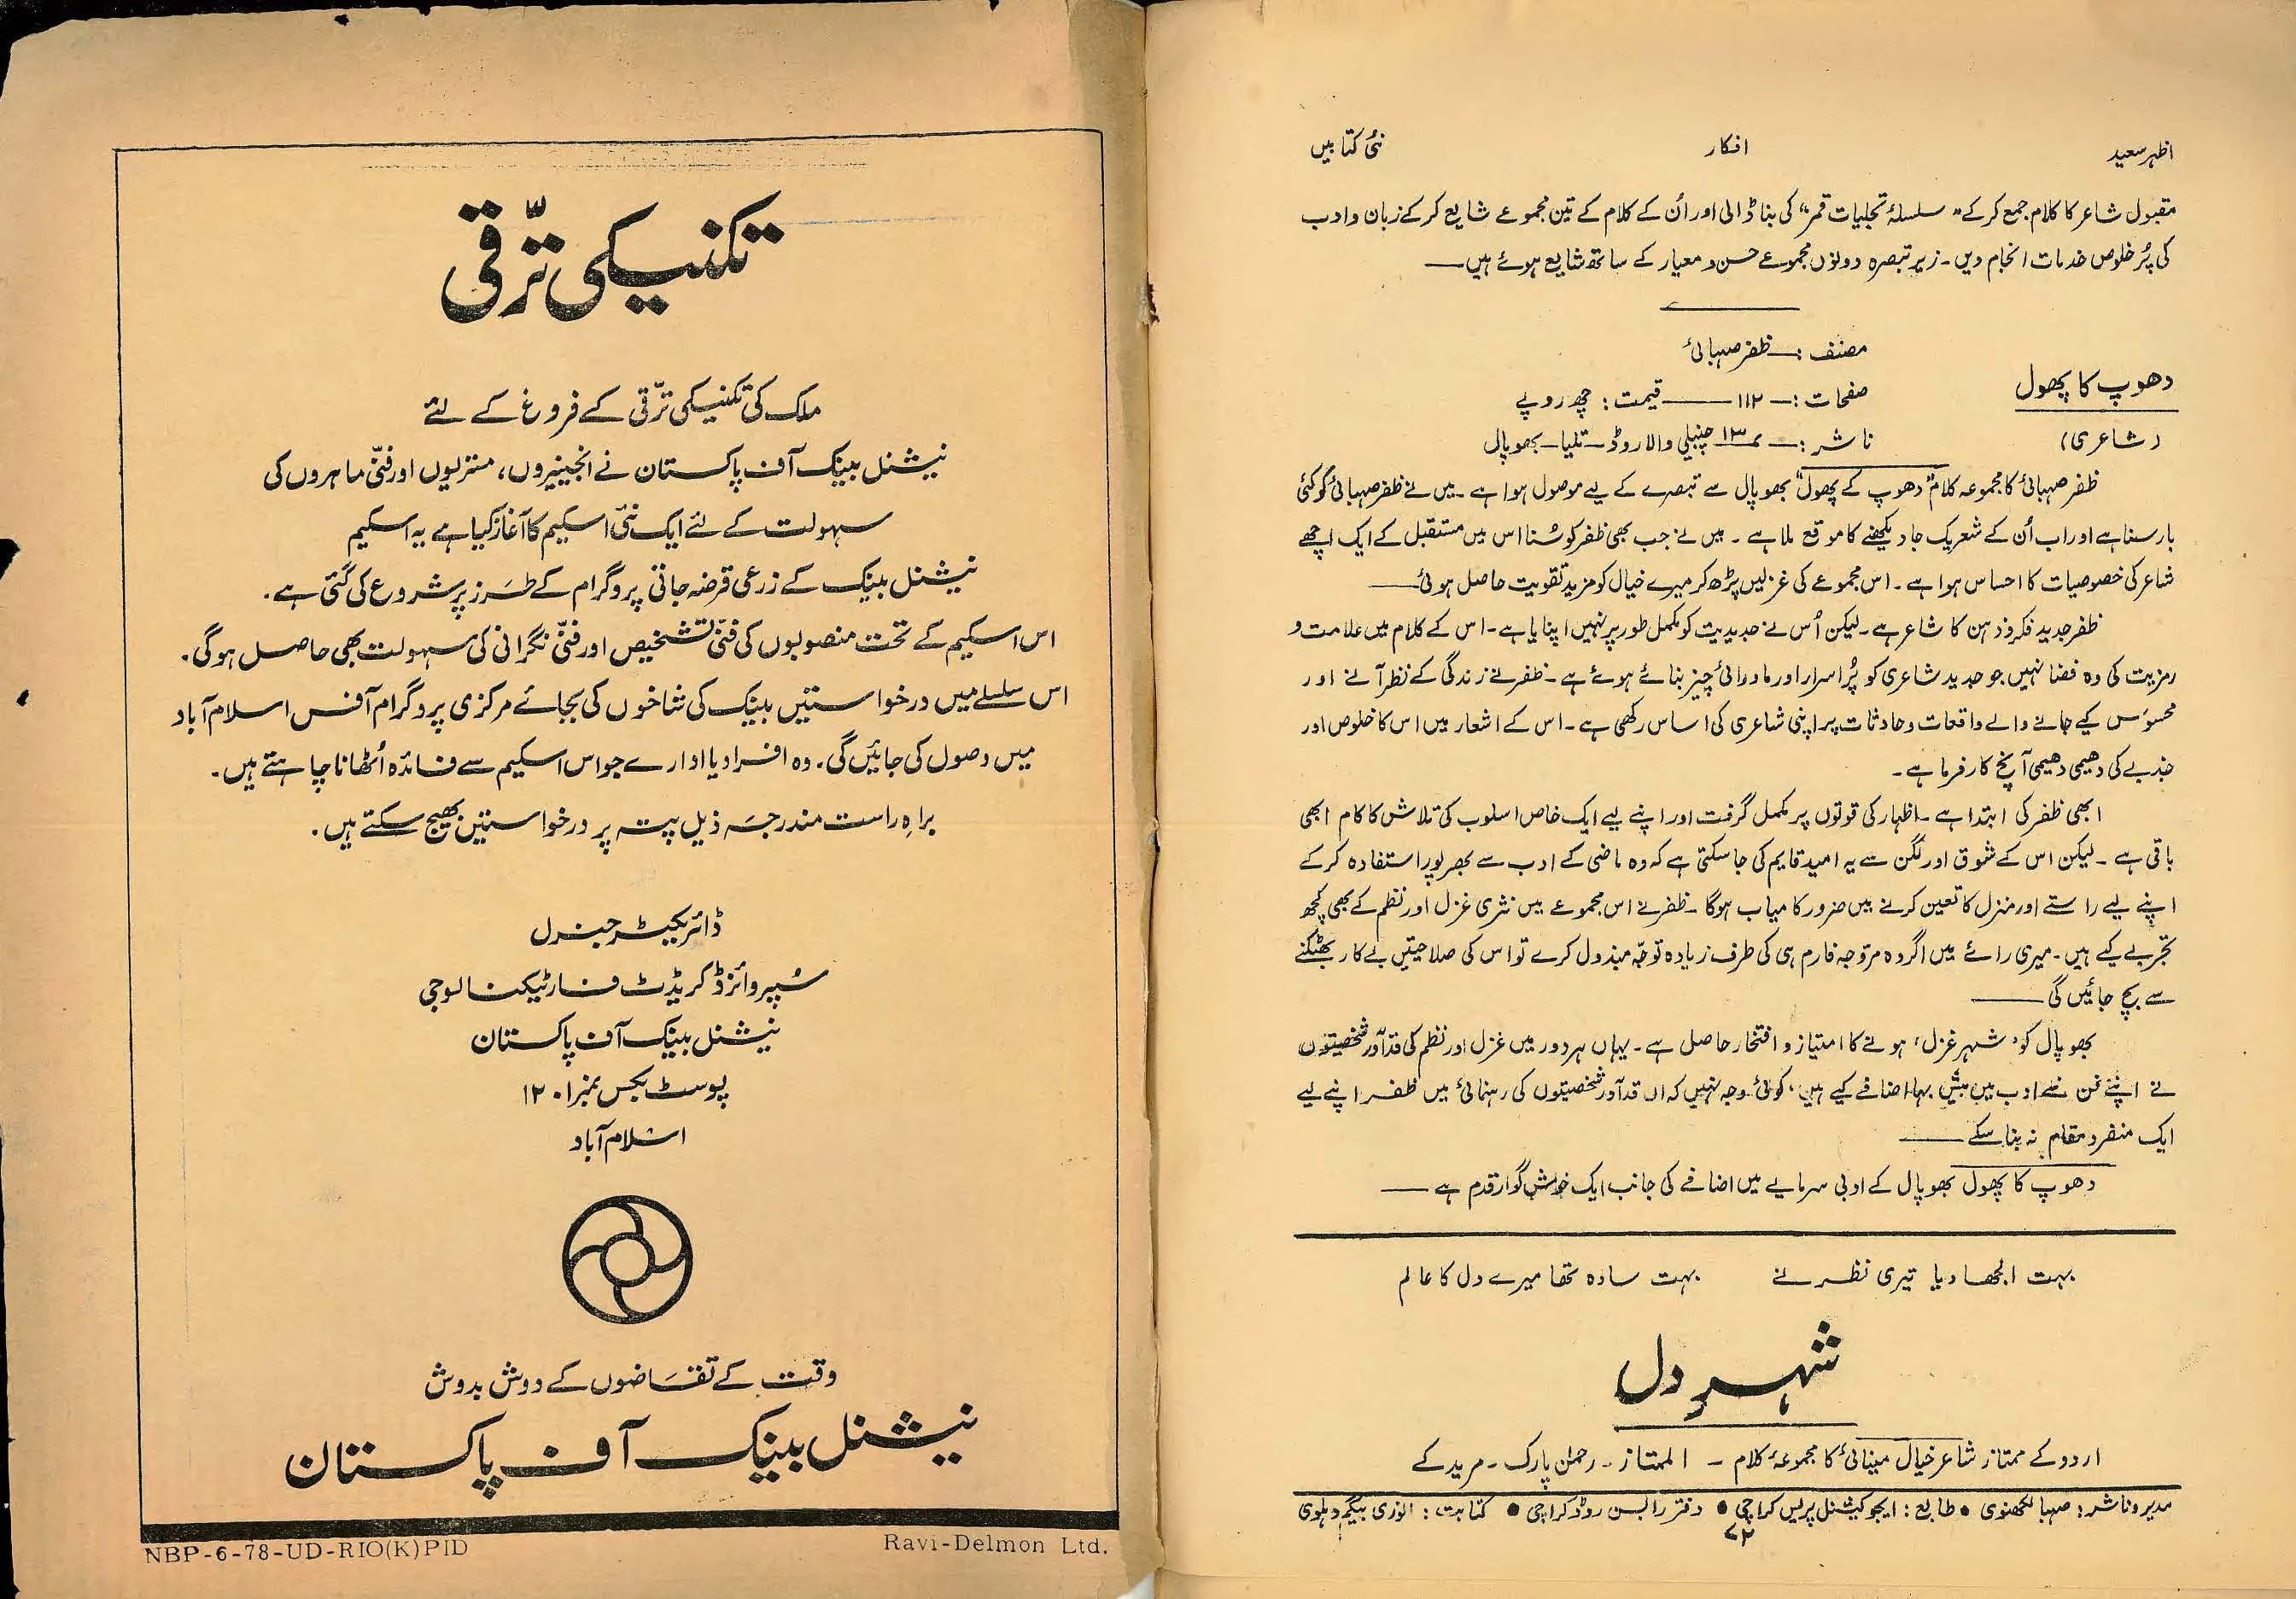 اظہر سعید
افکار
نئی کتابیں
مقبول شاعر کا کلام جمع کر کے "سلسلۂ تجلیات قمر" کی بنا ڈالی اور اُن کے کلام کے تین مجموعے شایع کر کے زبان و ادب
کی پُر خلوص خدمات انجام دیں۔ زیرِ تبصرہ دونوں مجموعے حسن و معیار کے ساتھ شایع ہوئے ہیں —
دھوپ کا پھول
(شاعری)
مصنف :— ظفر صہبائی
صفحات :— ۱۱۲ —— قیمت : چھ روپے
ناشر :— ۱۳ چنبیلی والا روڈ — تلیا — بھوپال
ظفر صہبائی کا مجموعہ کلام "دھوپ کے پھول" بھوپال سے تبصرے کے لیے موصول ہوا ہے۔ میں نے ظفر صہبائی کو کئی
بار سنا ہے اور اب اُن کے شعر یک جا دیکھنے کا موقع ملا ہے۔ میں نے جب بھی ظفر کو سُنا اس میں مستقبل کے ایک اچھے
شاعر کی خصوصیات کا احساس ہوا ہے۔ اس مجموعے کی غزلیں پڑھ کر میرے خیال کو مزید تقویت حاصل ہوئی —
ظفر جدید فکر و ذہن کا شاعر ہے۔ لیکن اُس نے جدیدیت کو مکمل طور پر نہیں اپنایا ہے۔ اس کے کلام میں علامت و
رمزیت کی وہ فضا نہیں جو جدید شاعری کو پُر اسرار اور ماورائی چیز بنائے ہوئے ہے۔ ظفر نے زندگی کے نظر آنے اور
محسوس کیے جانے والے واقعات و حادثات پر اپنی شاعری کی اساس رکھی ہے۔ اس کے اشعار میں اس کا خلوص اور
جذبے کی دھیمی دھیمی آنچ کار فرما ہے۔
ابھی ظفر کی ابتدا ہے۔ اظہار کی قوتوں پر مکمل گرفت اور اپنے لیے ایک خاص اسلوب کی تلاش کا کام ابھی
باقی ہے۔ لیکن اس کے شوق اور لگن سے یہ امید قایم کی جا سکتی ہے کہ وہ ماضی کے ادب سے بھرپور استفادہ کر کے
اپنے لیے راستے اور منزل کا تعین کرنے میں ضرور کامیاب ہوگا۔ ظفر نے اس مجموعے میں نثری غزل اور نظم کے بھی کچھ
تجربے کیے ہیں۔ میری رائے میں اگر وہ مروّجہ فارم ہی کی طرف زیادہ توجّہ مبذول کرے تو اس کی صلاحیتیں بے کار بھٹکنے
سے بچ جائیں گی —
بھوپال کو 'شہرِ غزل' ہونے کا امتیاز و افتخار حاصل ہے۔ یہاں ہر دور میں غزل اور نظم کی قدآور شخصیتوں
نے اپنے فن سے ادب میں بیش بہا اضافے کیے ہیں، کوئی وجہ نہیں کہ ان قدآور شخصیتوں کی رہنمائی میں ظفر اپنے لیے
ایک منفرد مقام نہ بنا سکے —
دھوپ کا پھول بھوپال کے ادبی سرمایے میں اضافے کی جانب ایک خوش گوار قدم ہے —
بہت الجھا دیا تیری نظر نے بہت سادہ تھا میرے دل کا عالم
شہرِ دل
اردو کے ممتاز شاعر خیال مینائی کا مجموعۂ کلام - الممتاز - رحمٰن پارک - مریدکے
مدیر و ناشر : صہبا لکھنوی • طابع : ایجوکیشنل پریس کراچی • دفتر رابسن روڈ کراچی • کتابت : انوری بیگم دہلوی
۷۲
تکنیکی ترّقی
ملک کی تکنیکی ترّقی کے فروغ کے لئے
نیشنل بینک آف پاکستان نے انجینیروں، مستریوں اور فنّی ماہروں کی
سہولت کے لئے ایک نئی اسکیم کا آغاز کیا ہے یہ اسکیم
نیشنل بینک کے زرعی قرضہ جاتی پروگرام کے طرز پر شروع کی گئی ہے.
اس اسکیم کے تحت منصوبوں کی فنّی تشخیص اور فنّی نگرانی کی سہولت بھی حاصل ہوگی.
اس سلسلے میں درخواستیں بینک کی شاخوں کی بجائے مرکزی پروگرام آفس اسلام آباد
میں وصول کی جائیں گی. وہ افراد یا ادارے جو اس اسکیم سے فائدہ اُٹھانا چاہتے ہیں.
براہِ راست مندرجہ ذیل پتہ پر درخواستیں بھیج سکتے ہیں.
ڈائریکٹر جنرل
سُپروائزڈ کریڈٹ فار ٹیکنالوجی
نیشنل بینک آف پاکستان
پوسٹ بکس نمبر ۱۲۰۱
اسلام آباد
وقت کے تقاضوں کے دوش بدوش
نیشنل بینک آف پاکستان
NBP-6-78-UD-RIO(K)PID
Ravi-Delmon Ltd.